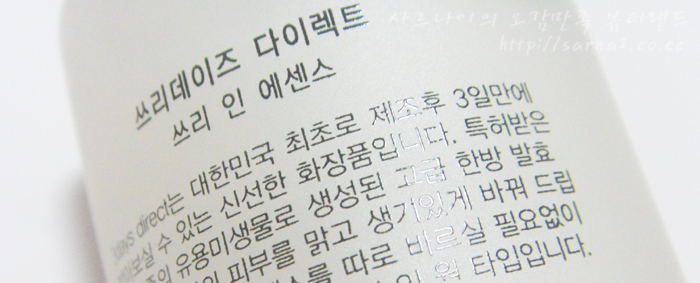 사르나이의 오감만족 뷰티랜드
http://sarna2.co.cc
쓰리데이즈 다이렉트
쓰리 인 에센스
3days direct는 대한민국 최초로 제조후 3일만에
받아보실 수 있는 신선한 화장품입니다. 특허받은
유용미생물로 생성된 고급 한방 발효
피부를 맑고 생기있게 바꿔 드립
따로 바르실 필요없이
타입입니다.